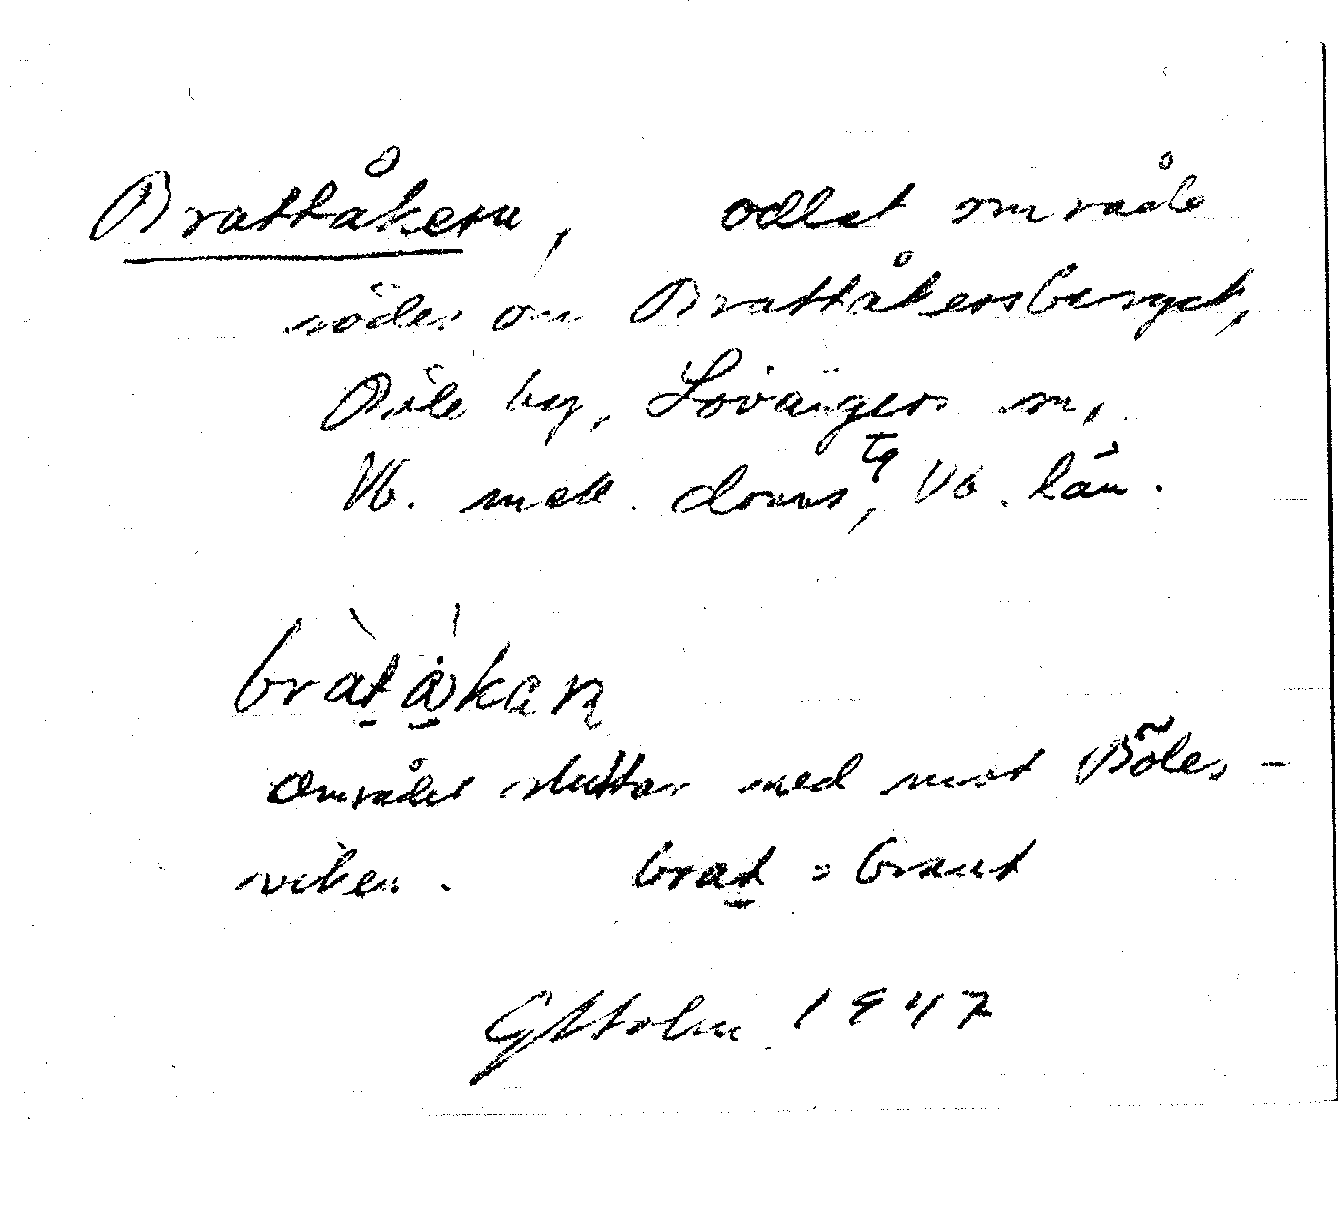 Brattåkern, odlat område
söder om Brattåkersberget,
Böle by, Lövångers sn,
Vb. mell. doms tg, Vb. län.
bràt̠å̠kaɳ
Området sluttar ned mot Böles-
viken. brat̠ = brant
GHolm 1947